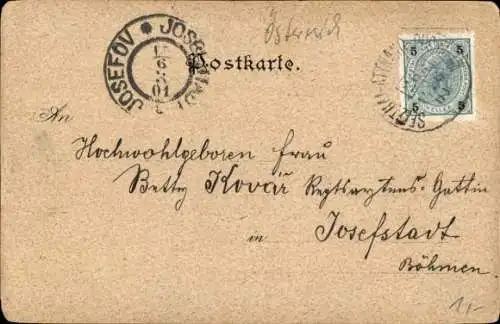 Österreich
JOSEFOV * JOSEFSTADT
6
3
01
Postkarte.
5 5
5 5
An
Hochwohlgeboren Frau
Betty Kovář Regtsarztens-Gattin
in Josefstadt
Böhmen
1,-